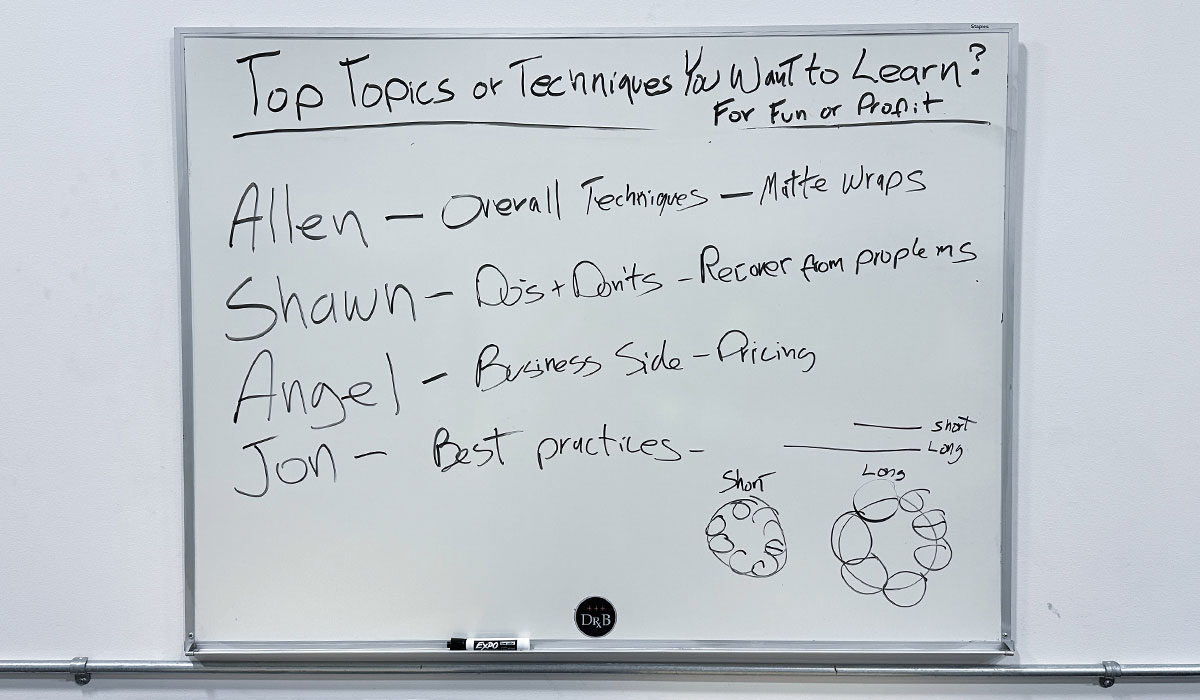 Staples
Top Topics or Techniques You Want to Learn?
For Fun or Profit
Allen — Overall Techniques — Matte Wraps
Shawn — Do's + Don'ts - Recover from proplems
Angel — Business Side - Pricing
Jon — Best practices -
short
Long
Short
Long
DRxB
EXPO